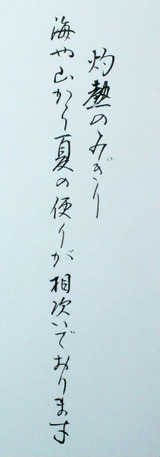 灼熱のみぎり
海や山から夏の便りが相次いでおります